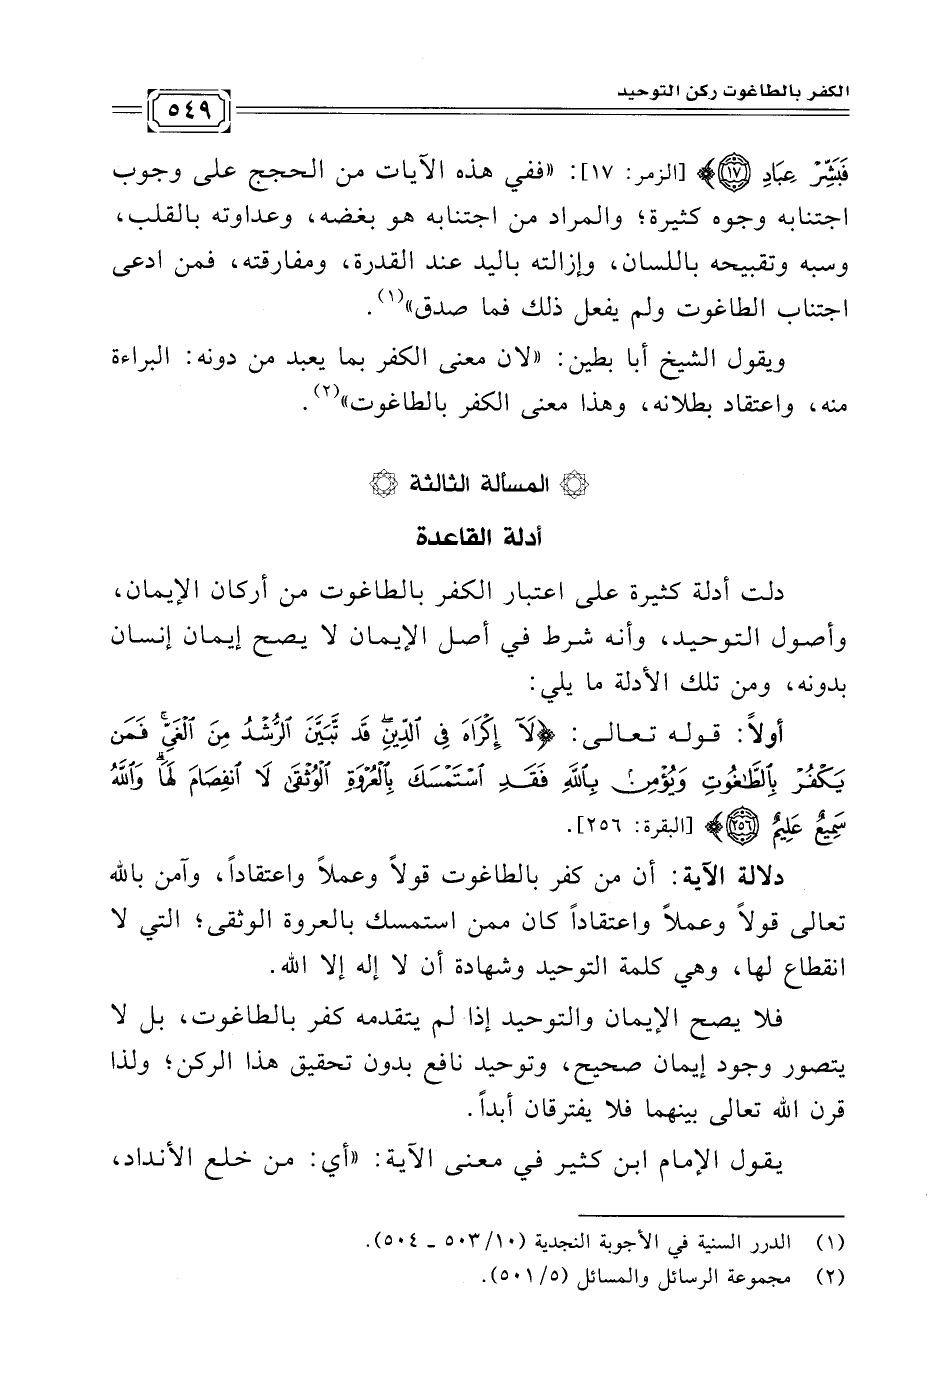 الكفر بالطاغوت ركن التوحيد
٥٤٩
فَبَشِّرْ عِبَادِ ﴿١٧﴾﴾ [الزمر: ١٧]: «ففي هذه الآيات من الحجج على وجوب
اجتنابه وجوه كثيرة؛ والمراد من اجتنابه هو بغضه، وعداوته بالقلب،
وسبه وتقبيحه باللسان، وإزالته باليد عند القدرة، ومفارقته، فمن ادعى
اجتناب الطاغوت ولم يفعل ذلك فما صدق»(١).
ويقول الشيخ أبا بطين: «لان معنى الكفر بما يعبد من دونه: البراءة
منه، واعتقاد بطلانه، وهذا معنى الكفر بالطاغوت»(٢).
المسألة الثالثة
أدلة القاعدة
دلت أدلة كثيرة على اعتبار الكفر بالطاغوت من أركان الإيمان،
وأصول التوحيد، وأنه شرط في أصل الإيمان لا يصح إيمان إنسان
بدونه، ومن تلك الأدلة ما يلي:
أولاً: قوله تعالى: ﴿لَآ إِكْرَاهَ فِى ٱلدِّينِ ۖ قَد تَّبَيَّنَ ٱلرُّشْدُ مِنَ ٱلْغَىِّ ۚ فَمَن
يَكْفُرْ بِٱلطَّٰغُوتِ وَيُؤْمِنۢ بِٱللَّهِ فَقَدِ ٱسْتَمْسَكَ بِٱلْعُرْوَةِ ٱلْوُثْقَىٰ لَا ٱنفِصَامَ لَهَا ۗ وَٱللَّهُ
سَمِيعٌ عَلِيمٌ ﴿٢٥٦﴾﴾ [البقرة: ٢٥٦].
دلالة الآية: أن من كفر بالطاغوت قولاً وعملاً واعتقاداً، وآمن بالله
تعالى قولاً وعملاً واعتقاداً كان ممن استمسك بالعروة الوثقى؛ التي لا
انقطاع لها، وهي كلمة التوحيد وشهادة أن لا إله إلا الله.
فلا يصح الإيمان والتوحيد إذا لم يتقدمه كفر بالطاغوت، بل لا
يتصور وجود إيمان صحيح، وتوحيد نافع بدون تحقيق هذا الركن؛ ولذا
قرن الله تعالى بينهما فلا يفترقان أبداً.
يقول الإمام ابن كثير في معنى الآية: «أي: من خلع الأنداد،
(١) الدرر السنية في الأجوبة النجدية (١٠/٥٠٣ - ٥٠٤).
(٢) مجموعة الرسائل والمسائل (٥/٥٠١).